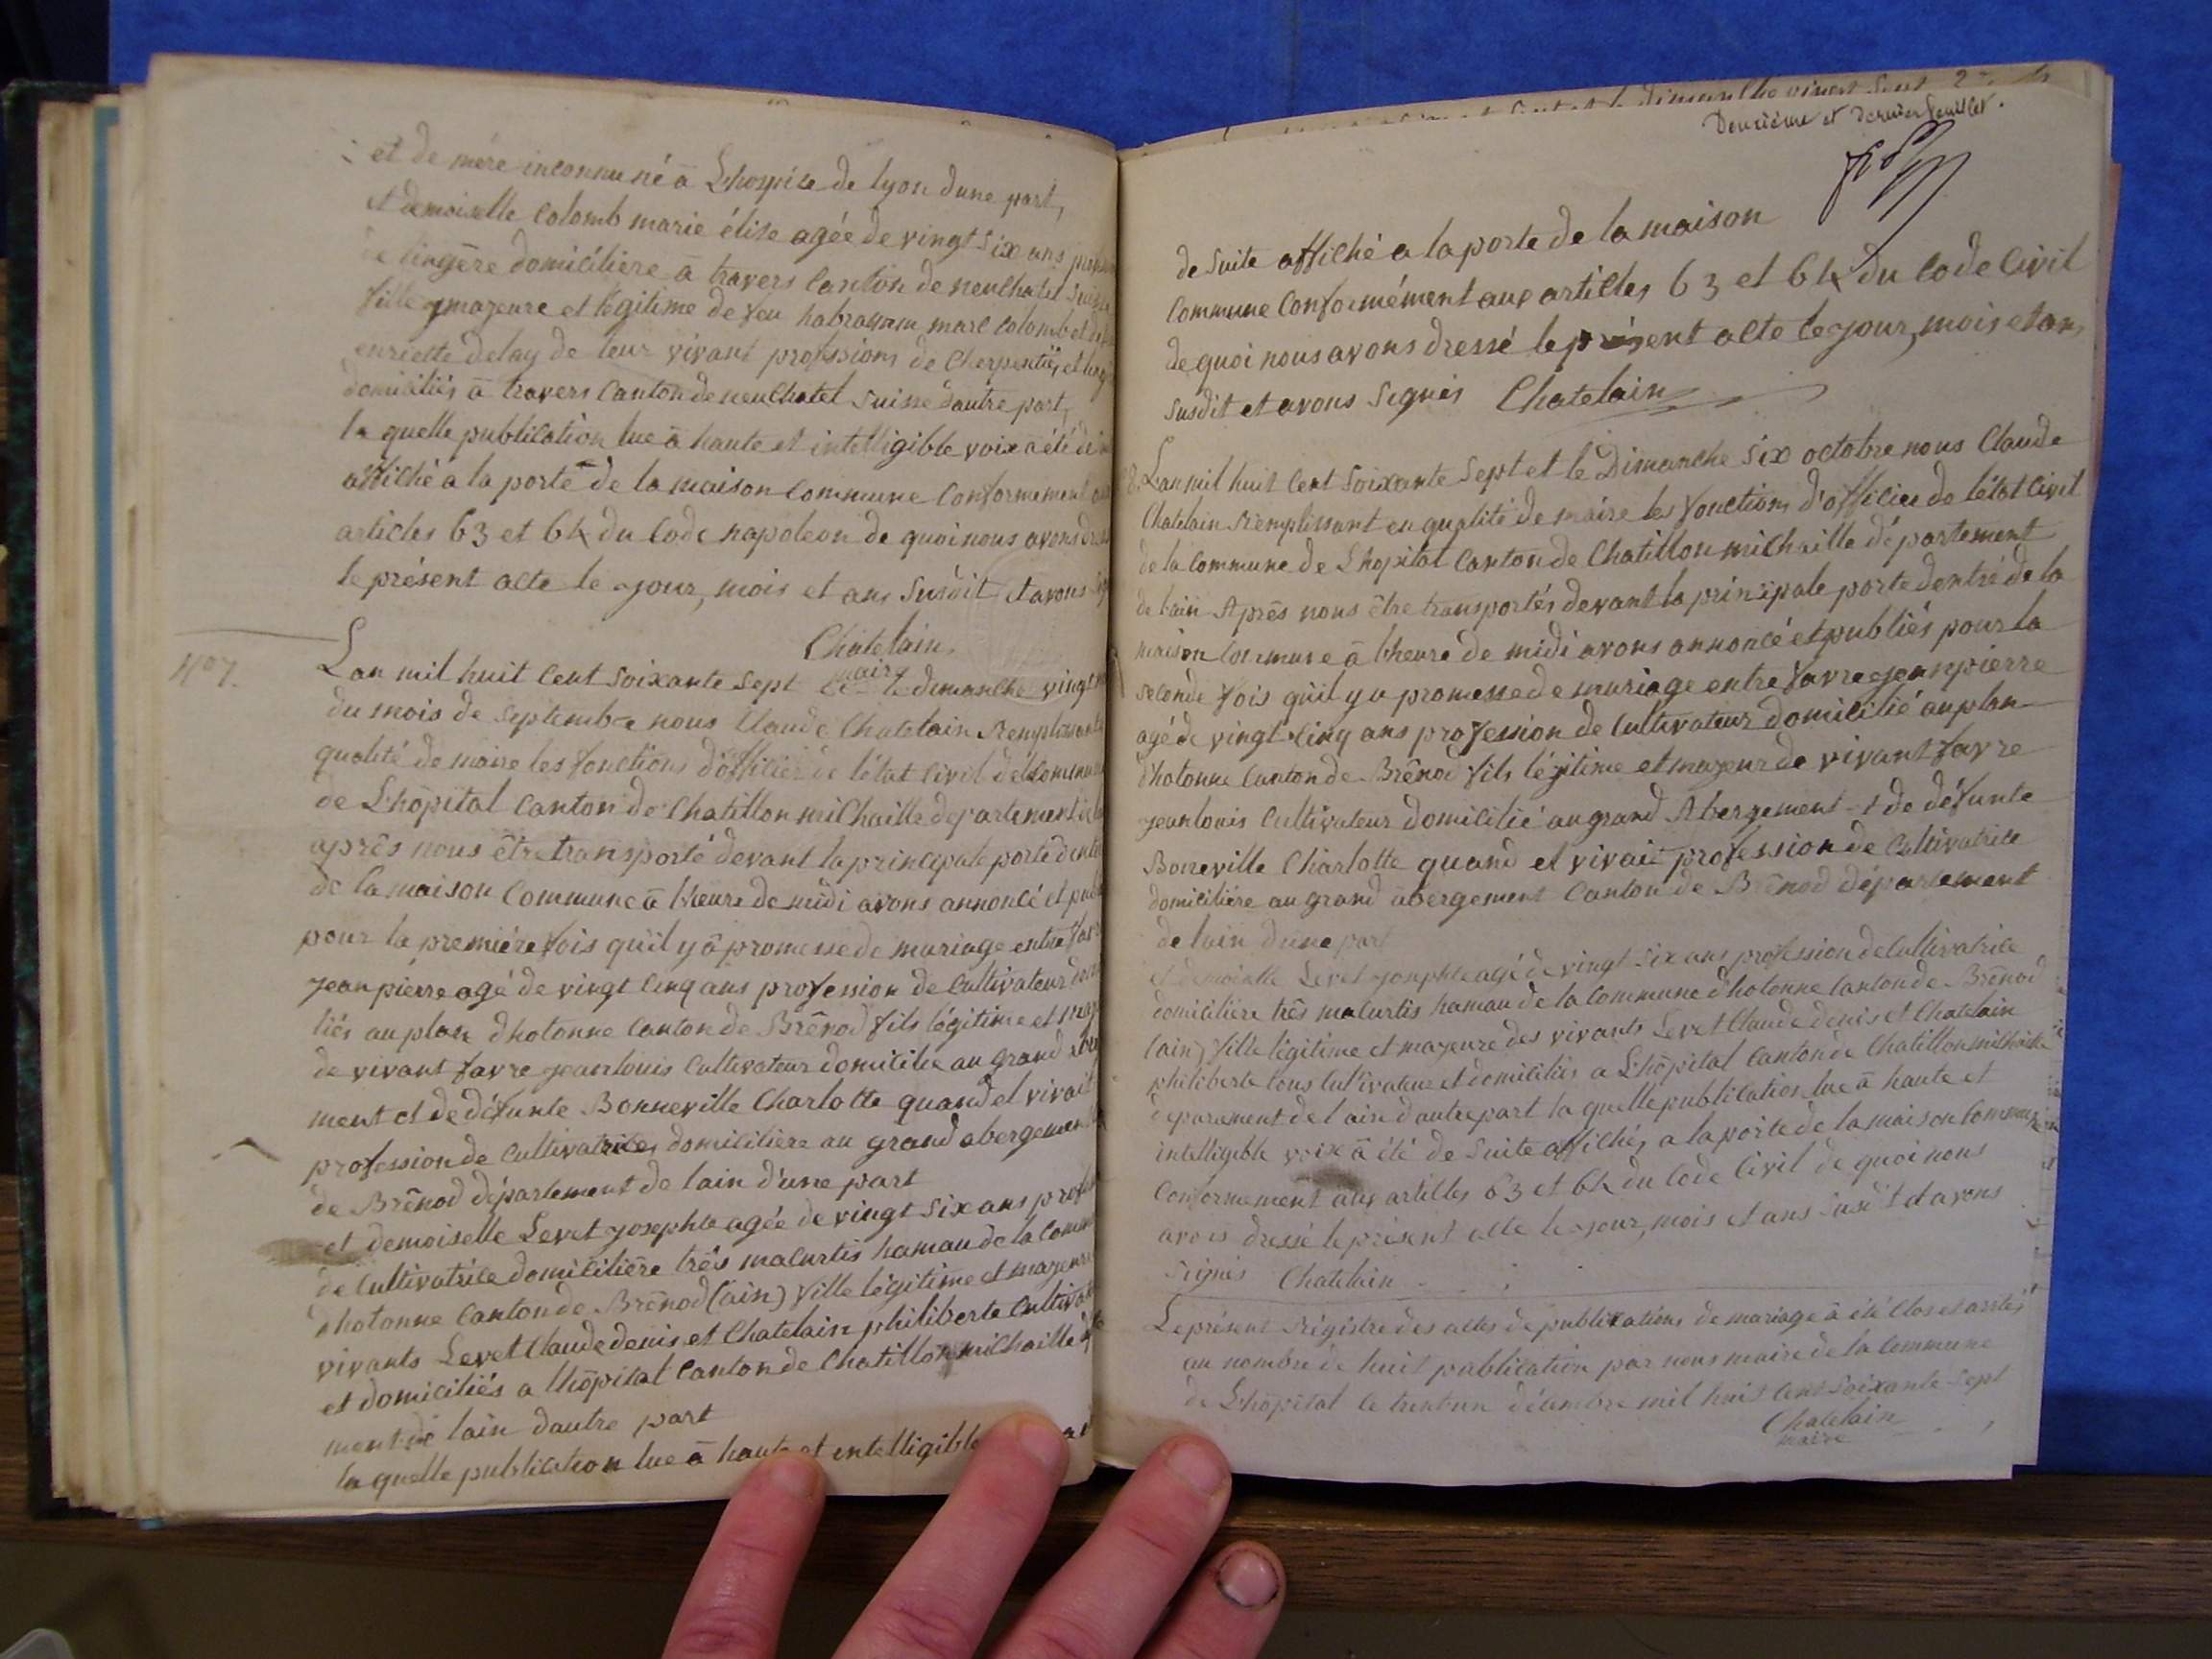 et de mére inconnu né ā L'hospice de lyon dune part,
et demoiselle Colomb marie élise agée de vingt six ans
de lingère domicilière ā travers Canton de neuchatel Suisse
fille majeure et légitime de feu habraham marc Colomb et
enriette delay de leur vivant professions de Cherpentiér et
domiciliés ā travers Canton de neuchatel Suisse dautre part,
la quelle publication lue ā haute et intelligible voix a été de
affiché a la porte de la maison Commune Conformement
articles 63 et 64 du Code napoleon de quoi nous avons
le présent acte le jour, mois et ans Susdit et avons
Chatelain
maire
N°7.
Lan mil huit Cent Soixante Sept le dimanche vingt
du mois de Septembre nous Claude Chatelain Remplissant
qualité de maire les fonctions d'officier de l'état Civil de
de L'hôpital Canton de Chatillon michaille departement
après nous être transporté devant la principale porte
de la maison Commune ā l'heure de midi avons annoncé et
pour la premiére fois qu'il y ā promesse de mariage entre
jean pierre agé de vingt Cinq ans profession de Cultivateur
liés au plan d'hotonne Canton de Brēnod fils légitime et
de vivant favre jean louis Cultivateur domicilié au grand
ment et de défunte Bonneville Charlotte quand el vivait
profession de Cultivatrice domicilière au grand abergement
de Brēnod département de lain d'une part
et demoiselle Levet josephte agée de vingt Six ans
de Cultivatrice domicilière très malurtis hamau de la
d'hotonne Canton de Brēnod (ain) fille légitime et majeure
vivants Levet Claude denis et Chatelain philiberte
et domiciliés a lhôpital Canton de Chatillon michaille
ment de lain dautre part
la quelle publication lue ā haute et intelligible
Deuxième et dernier feuillet.
de Suite affiché a la porte de la maison
Commune Conformément aux articles 63 et 64 du Code Civil
de quoi nous avons dressé le présent acte le jour, mois et ans
Susdit et avons Signés Chatelain
8. Lan mil huit Cent Soixante Sept et le Dimanche Six octobre nous Claude
Chatelain Remplissant en qualité de maire les fonctions d'officier de l'état Civil
de la Commune de L'hopital Canton de Chatillon michaille département
de lain Après nous être transportés devant la principale porte dentré de la
maison Commune ā l'heure de midi avons annoncé et publiés pour la
seconde fois qu'il y a promesse de mariage entre favre jean pierre
agé de vingt Cinq ans profession de Cultivateur domicilié au plan
d'hotonne Canton de Brênod fils légitime et majeur de vivant favre
jean louis Cultivateur domicilié au grand Abergement et de défunte
Boneville Charlotte quand el vivait profession de Cultivatrice
domicilière au grand abergement Canton de Brēnod département
de lain dune part
et demoiselle Levet josephte agé de vingt Six ans profession de Cultivatrice
domicilière très malurtis hamau de la Commune d'hotonne Canton de Brēnod
(ain) fille légitime et majeure des vivants Levet Claude denis et Chatelain
philiberte tous Cultivateur et domiciliés a L'hôpital Canton de Chatillon michaille
deparement de lain dautre part la quelle publication lue ā haute et
intelligible voix ā été de Suite affichés a la porte de la maison Commune
Conformement aux articles 63 et 64 du Code Civil de quoi nous
avons dressé le présent acte le jour, mois et ans Susdit et avons
Signés Chatelain
Le présent Régistre des actes de publications de mariage ā été Clos et arrêté
au nombre de huit publication par nous maire de la Commune
de L'hôpital le trentun décembre mil huit Cent Soixante Sept
Chatelain
maire